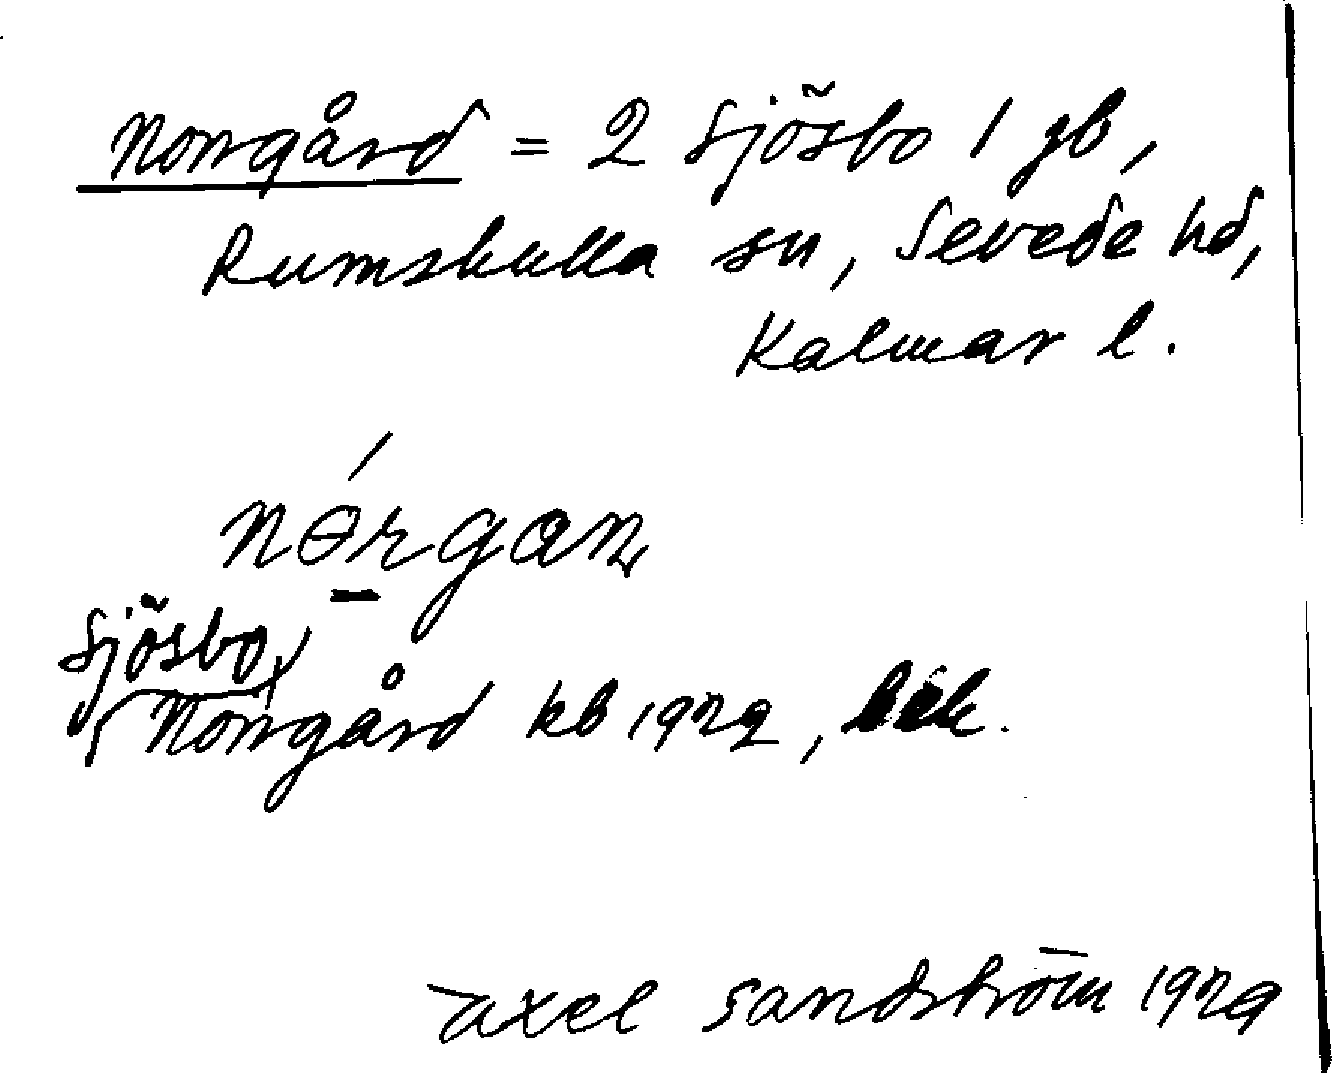 Norrgård = 2 Sjösbo 1 gb,
Rumskulla sn, Sevede hd,
Kalmar l.
nɵ́rgan
Sjösbo,
(Norrgård kb 1929,
Axel Sandström 1929